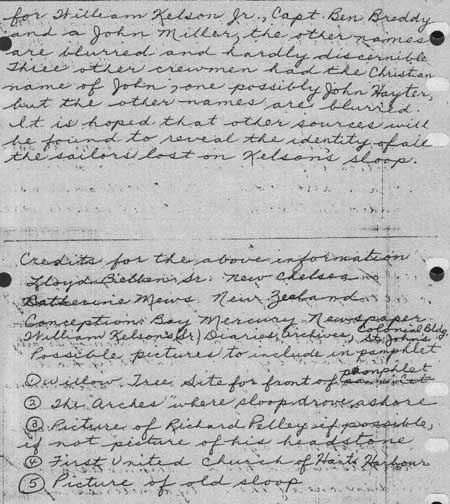 for William Kelson Jr., Capt. Ben Breddy
and a John Miller, the other names
are blurred and hardly discernible
Three other crewmen had the Christian
name of John, one possibly John Hayter,
but the other names are blurred.
It is hoped that other sources will
be found to reveal the identity of all
the sailors lost on Kelson's sloop.
Credits for the above information
Lloyd Sr. New Chelsea
Katherine Mews. New Zealand
Conception Bay Mercury Newspaper
William Kelson (Sr.) Diaries, archives, Colonial Bldg. St. John's
Possible pictures to include in pamphlet
① Willow Tree Site for front of pamphlet
② The Arches "where sloop drove ashore
③ Picture of Richard Pelley if possible,
if not picture of his headstone
④ First United Church of Hants Harbour
⑤ Picture of old sloop